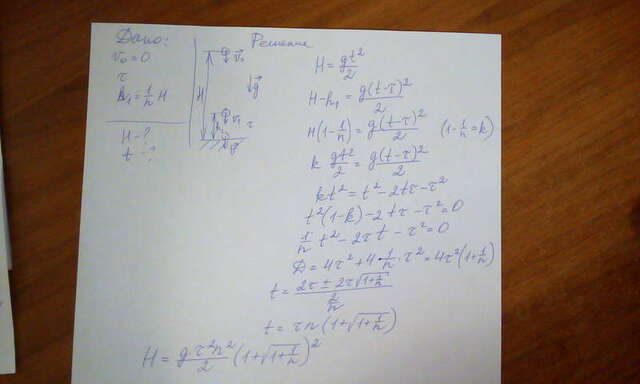 Дано:
v₀ = 0
τ
h₁ = 1/n H
H - ?
t - ?
Решение
v₀
g
H
h₁
v₁
τ
v
H = gt²/2
H - h₁ = g(t-τ)²/2
H(1 - 1/n) = g(t-τ)²/2 (1 - 1/n = k)
k gt²/2 = g(t-τ)²/2
kt² = t² - 2tτ - τ²
t²(1-k) - 2tτ - τ² = 0
1/n t² - 2τt - τ² = 0
D = 4τ² + 4·1/n·τ² = 4τ²(1 + 1/n)
t = (2τ ± 2τ√(1 + 1/n)) / (2/n)
t = τn(1 + √(1 + 1/n))
H = gτ²n²/2 (1 + √(1 + 1/n))²